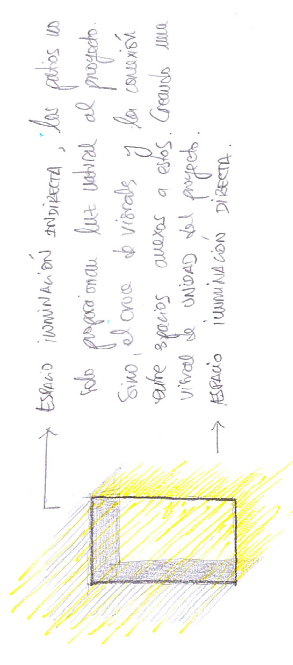 ESPACIO ILUMINACIÓN INDIRECTA, los patios no
solo proporcionan luz natural al proyecto.
Sino, el cruce de visuales y la conexión
entre espacios anexos a estos. Creando una
visual de UNIDAD del proyecto.
ESPACIO ILUMINACIÓN DIRECTA.